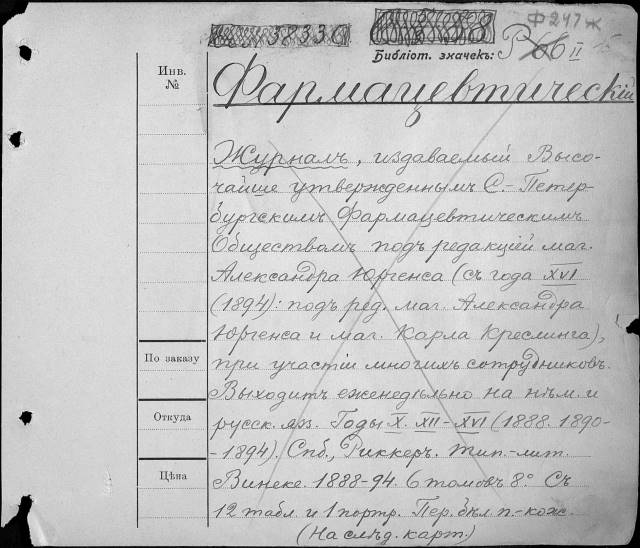 38330
Ф 247 Ж
Библіот. значекъ: P II
Инв. №
Фармацевтическій
Журналъ, издаваемый Высо-
чайше утвержденнымъ С.-Петер-
бургскимъ Фармацевтическимъ
Обществомъ подъ редакціей маг.
Александра Юргенса (съ года XVI
(1894): подъ ред. маг. Александра
Юргенса и маг. Карла Креслинга),
По заказу
при участіи многихъ сотрудниковъ.
Выходитъ еженедѣльно на нѣм. и
Откуда
русск. яз. Годы X. XII-XVI (1888. 1890-
-1894). Спб., Риккеръ. Тип.-лит.
Цѣна
Винеке. 1888-94. 6 томовъ 8°. Съ
12 табл. и 1 портр. Пер. бѣл. п.-кож.
(На слѣд. карт.)